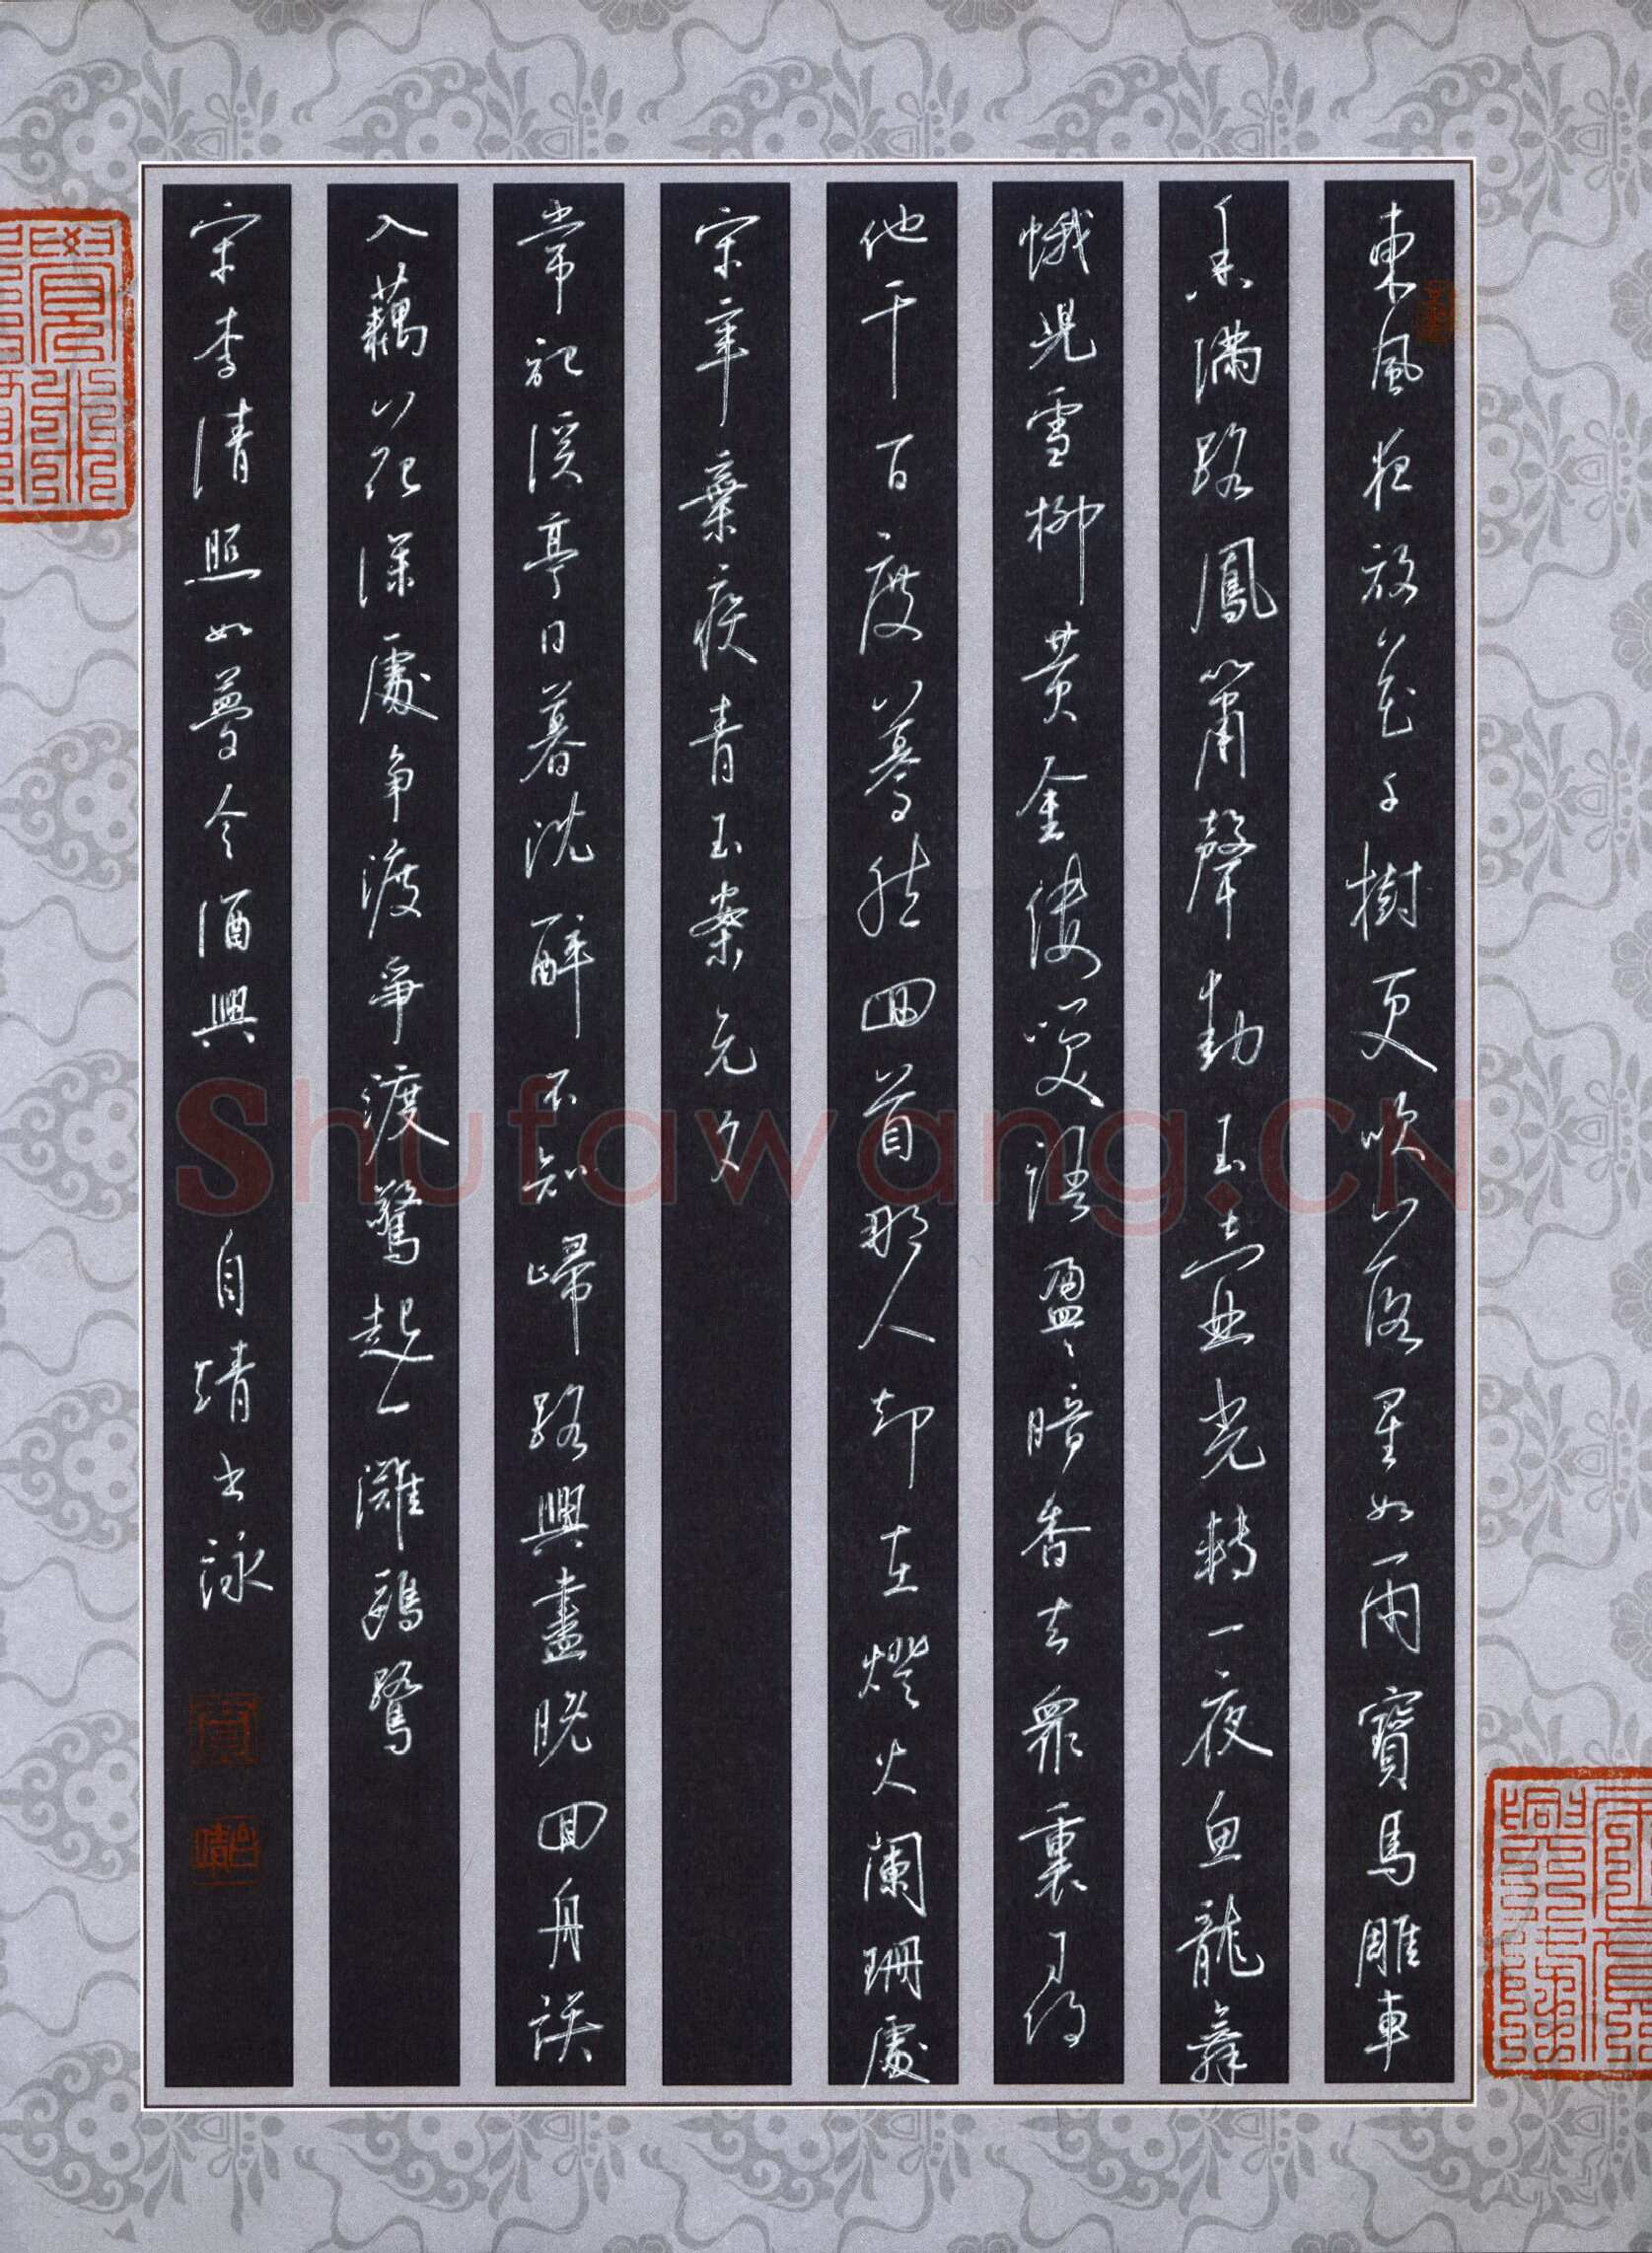 東風夜放花千樹更吹落星如雨寶馬雕車
香滿路鳳簫聲動玉壺光轉一夜魚龍舞
蛾兒雪柳黃金縷笑語盈々暗香去衆裏尋他
他千百度驀然回首那人却在燈火闌珊處
宋辛棄疾青玉案元夕
常記溪亭日暮沈醉不知歸路興盡晚回舟誤
入藕花深處争渡爭渡驚起一灘鷗鷺
宋李清照如夢令酒興 自靖書詠
Shufawang.CN